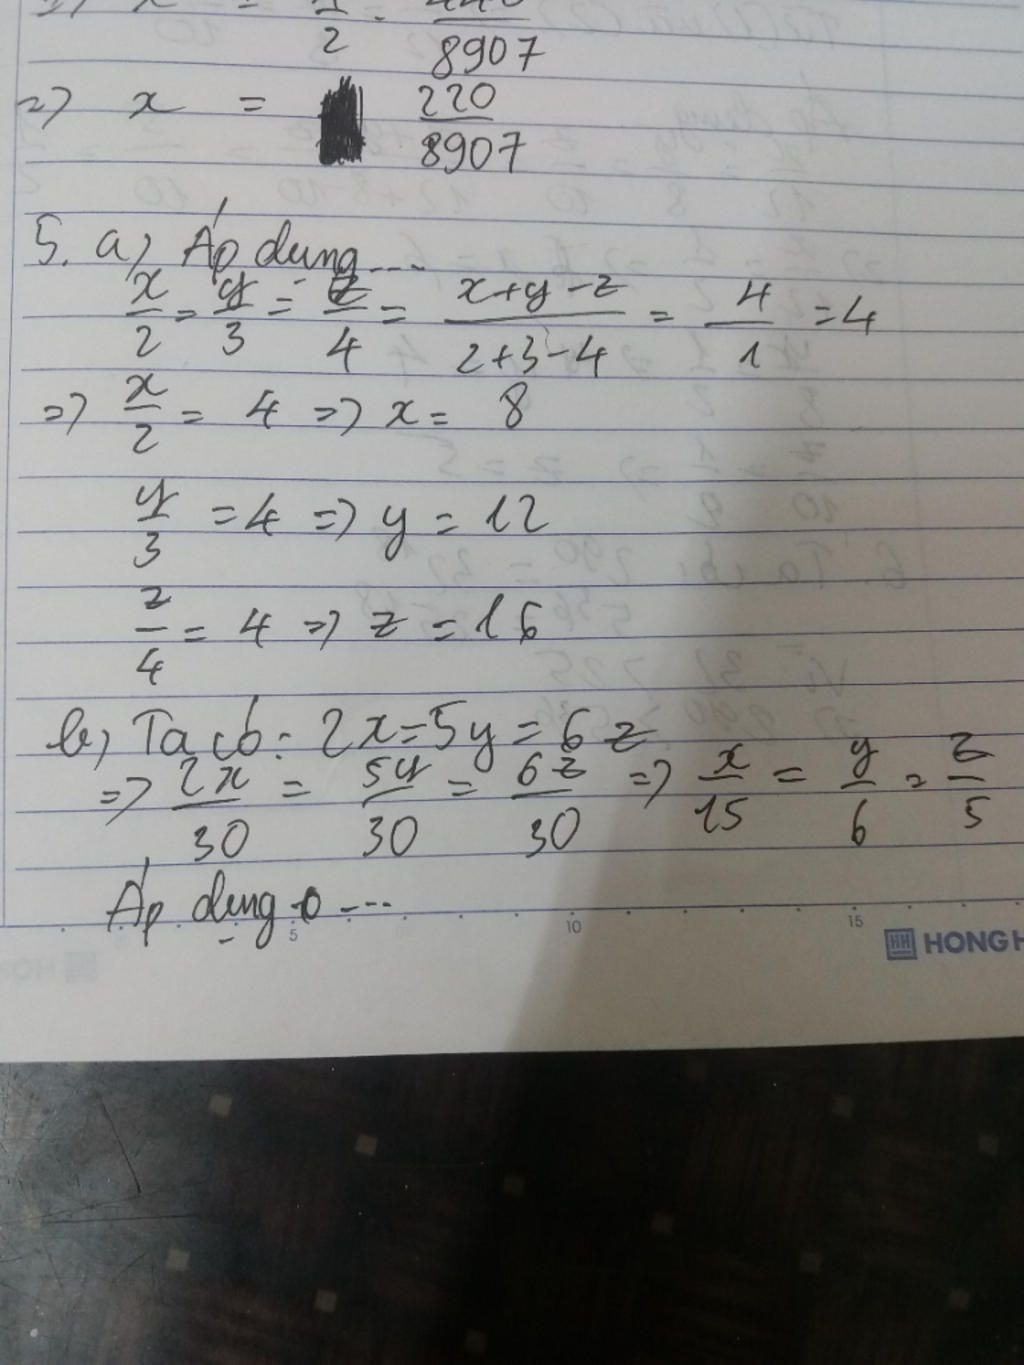 => x = 1/2 . 440/8907
=> x = 220/8907
5. a) Áp dụng...
x/2 = y/3 = z/4 = (x+y-z)/(2+3-4) = 4/1 = 4
=> x/2 = 4 => x = 8
y/3 = 4 => y = 12
z/4 = 4 => z = 16
b) Ta có: 2x = 5y = 6z
=> 2x/30 = 5y/30 = 6z/30 => x/15 = y/6 = z/5
Áp dụng ...
5 10 15
HONG H